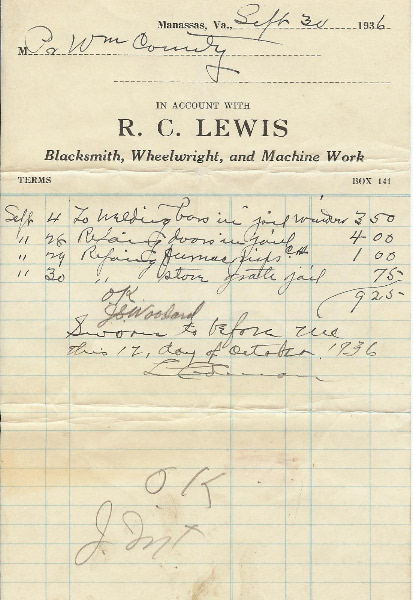 Manassas, Va., Sept 30 1936
M Pr Wm County
IN ACCOUNT WITH
R. C. LEWIS
Blacksmith, Wheelwright, and Machine Work
TERMS BOX 141
Sept 4 To Welding bars in jail window 3 50
" 26 Repairing doors in jail 4 00
" 29 Repairing furnace 1 00
" 30 " stove grate jail 75
9 25
OK
Woodard
Sworn to before me
this 17, day of October, 1936
OK